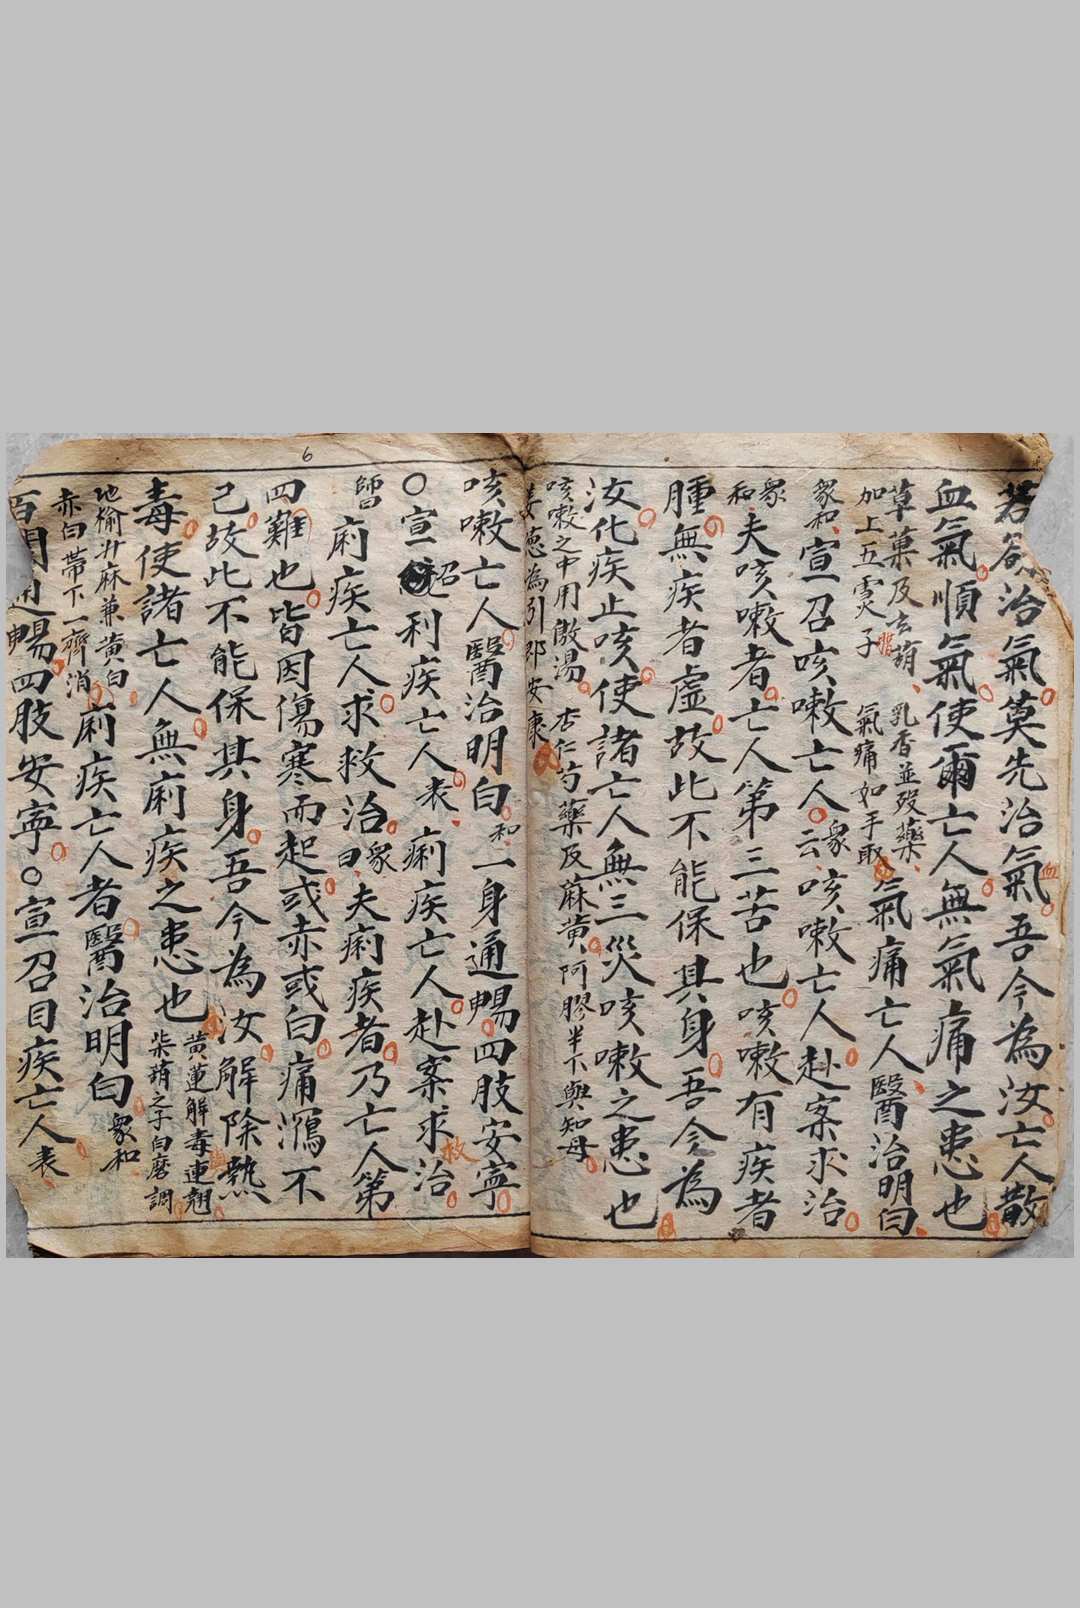 若欲治氣莫先治氣血吾今為汝亡人散
血氣順氣使爾亡人無氣痛之患也
草菓及去萠 乳香並歿藥
加上五灵子脂 氣痛如手取
氣痛亡人醫治明白
衆和 宣召咳嗽亡人衆云咳嗽亡人赴案求治
衆和 夫咳嗽者亡人第三苦也咳嗽有疾者
腫無疾者虛故此不能保其身吾今為
汝化疾止咳使諸亡人無三災咳嗽之患也
咳嗽之中用散湯 杏仁芍藥及蔴黃 阿膠半下與知母
姜葱為引即安康
咳嗽亡人醫治明白和一身通暢四肢安寧
○宣召利疾亡人表痢疾亡人赴案求救治
師曰 痢疾亡人求救治衆曰夫痢疾者乃亡人第
四難也皆因傷寒而起或赤或白痛瀉不
己故此不能保其身吾今為汝解除熱
毒使諸亡人無痢疾之患也
黃蓮解毒連翹
柴萠之子白磨調
地榆升麻兼黃白
赤白帶下一齊消
痢疾亡人者醫治明白衆和
百關通暢四肢安寧○宣召目疾亡人表
6